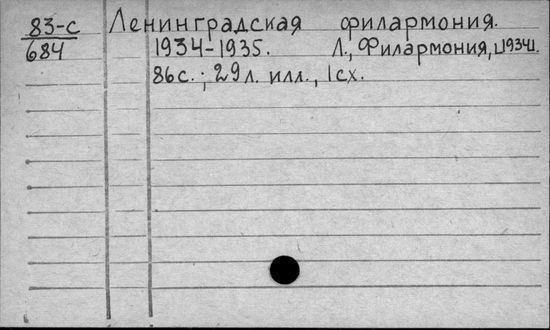 83-с Ленинградская филармония.
684 1934-1935. Л., Филармония, [1934].
86с.; 29л. илл., 1сх.